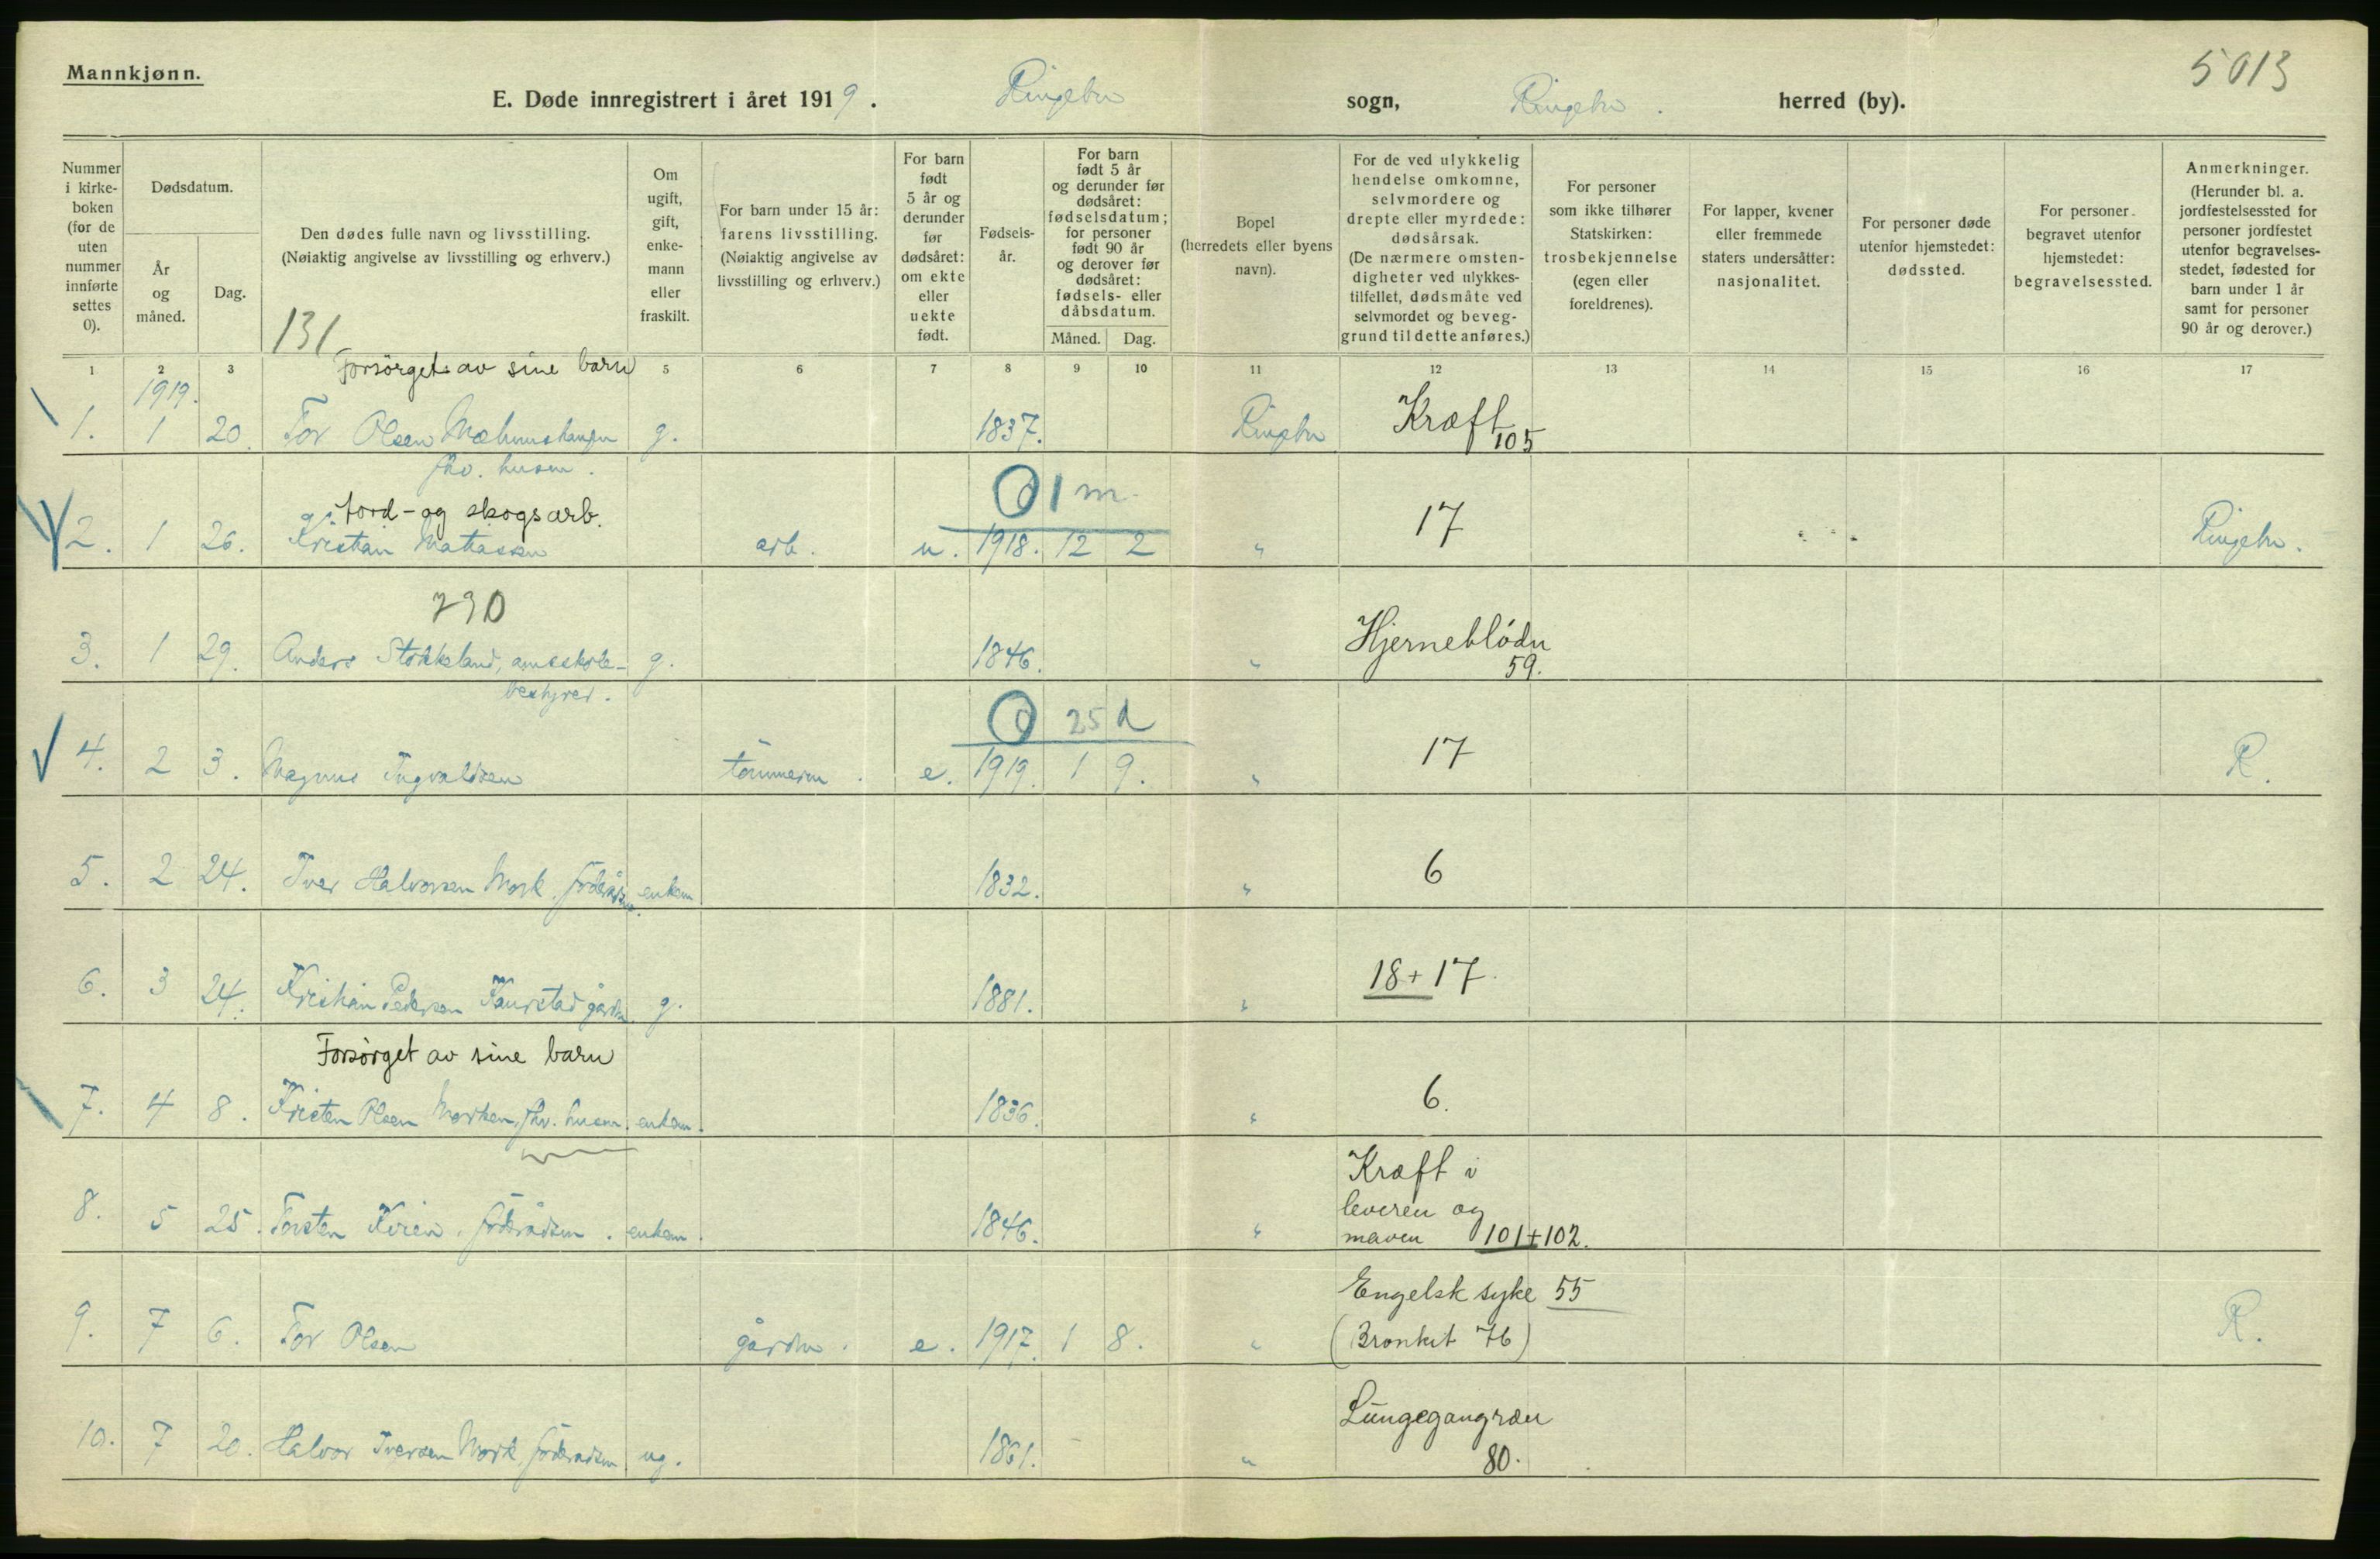 Mannkjønn.
5013
E. Døde innregistrert i året 1919. Ringebu sogn, Ringebu. herred (by).
Nummer i kirke- boken (for de uten nummer innførte settes 0).
Dødsdatum.
År og måned.
Dag.
Den dødes fulle navn og livsstilling.
(Nøiaktig angivelse av livsstilling og erhverv.)
Om ugift, gift, enke- mann eller fraskilt.
For barn under 15 år: farens livsstilling. (Nøiaktig angivelse av livsstilling og erhverv.)
For barn født 5 år og derunder før dødsåret: om ekte eller uekte født.
Fødsels- år.
For barn født 5 år og derunder før dødsåret: fødselsdatum; for personer født 90 år og derover før dødsåret: fødsels- eller dåbsdatum.
Måned. Dag.
Bopel (herredets eller byens navn).
For de ved ulykkelig hendelse omkomne, selvmordere og drepte eller myrdede: dødsårsak. (De nærmere omsten- digheter ved ulykkes- tilfellet, dødsmåte ved selvmordet og beveg- grund til dette anføres.)
For personer som ikke tilhører Statskirken: trosbekjennelse (egen eller foreldrenes).
For lapper, kvener eller fremmede staters undersåtter: nasjonalitet.
For personer døde utenfor hjemstedet: dødssted.
For personer begravet utenfor hjemstedet: begravelsessted.
Anmerkninger. (Herunder bl. a. jordfestelsessted for personer jordfestet utenfor begravelses- stedet, fødested for barn under 1 år samt for personer 90 år og derover.)
131
1 2 3 5 6 7 8 9 10 11 12 13 14 15 16 17
Forsørget av sine barn
1919.
1. 1 20. Tor Olsen g. 1837. Ringebu Kræft 105
fhv. husm.
O 1 m.
Jord- og skogsarb.
2. 1 26. Kristian Matiasen arb. u. 1918. 12 2 " 17 Ringebu.
790
3. 1 29. Anders Stokkeland, amsskole- g. 1846. " Hjerneblödn 59.
bestyrer.
O 25 d
4. 2 3. Magnus Ingvaldsen tömmerm. e. 1919. 1 9. " 17 R.
5. 2 24. Iver Halvorsen Mork, föderådsm. enkem. 1832. " 6
6. 3 24. Kristian Pedersen Kaurstad gårdbr. g. 1881. " 18+17.
Forsørget av sine barn
7. 4 8. Kristen Olsen Morken, fhv. husm. enkem. 1836. " 6.
8. 5 25. Torsten Kvien, föderådsm. enkem. 1846. " Kræft i
leveren og
maven 101+102.
9. 7 6. Tor Olsen gårdbr. e. 1917. 1 8. " Engelsk syke 55 R.
(Bronkit 76)
10. 7 20. Halvor Iversen Mork, föderådsm ug. 1861. " Lungegangræn
80.